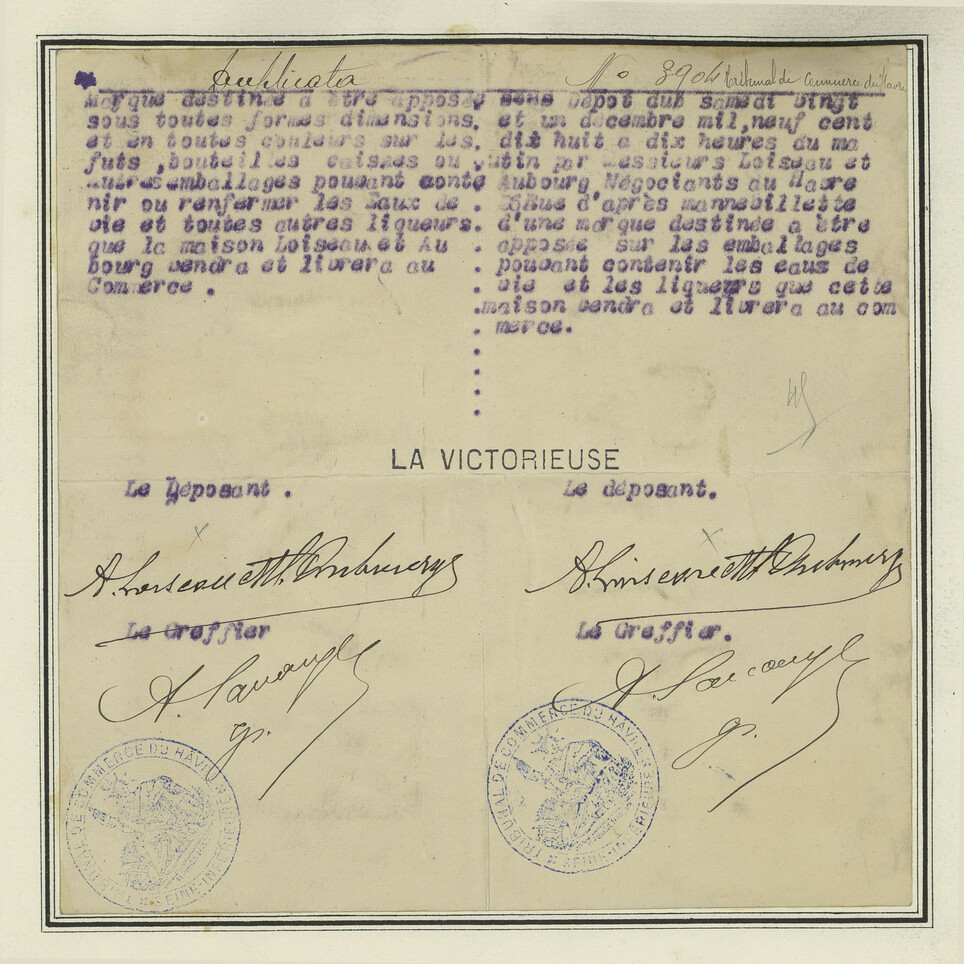 Duplicata
No 3904 Tribunal de Commerce du Havre
Marque destinée a être apposée
sous toutes formes dimensions.
et en toutes couleurs sur les
futs ,bouteilles caisses ou
autres emballages pouvant conte
nir ou renfermer les Eaux de
vie et toutes autres liqueurs.
que la maison Loiseau et Au
bourg vendra et livrera au
Commerce .
Dépot du samedi vingt
et un décembre mil,neuf cent
dix huit a dix heures du ma
tin par Messieurs Loiseau et
Aubourg Négociants du Havre
Rue d'après mannevillette
d'une marque destinée a être
apposée sur les emballages
pouvant contenir les eaux de
vie et les liqueurs que cette
maison vendra et livrera au com
merce.
LA VICTORIEUSE
Le Déposant .
Le déposant.
A. Loiseau et H. Aubourg
A. Loiseau et H. Aubourg
Le Greffier
Le Greffier.
TRIBUNAL DE COMMERCE DU HAVRE
SEINE-INFERIEURE
TRIBUNAL DE COMMERCE DU HAVRE
SEINE-INFERIEURE